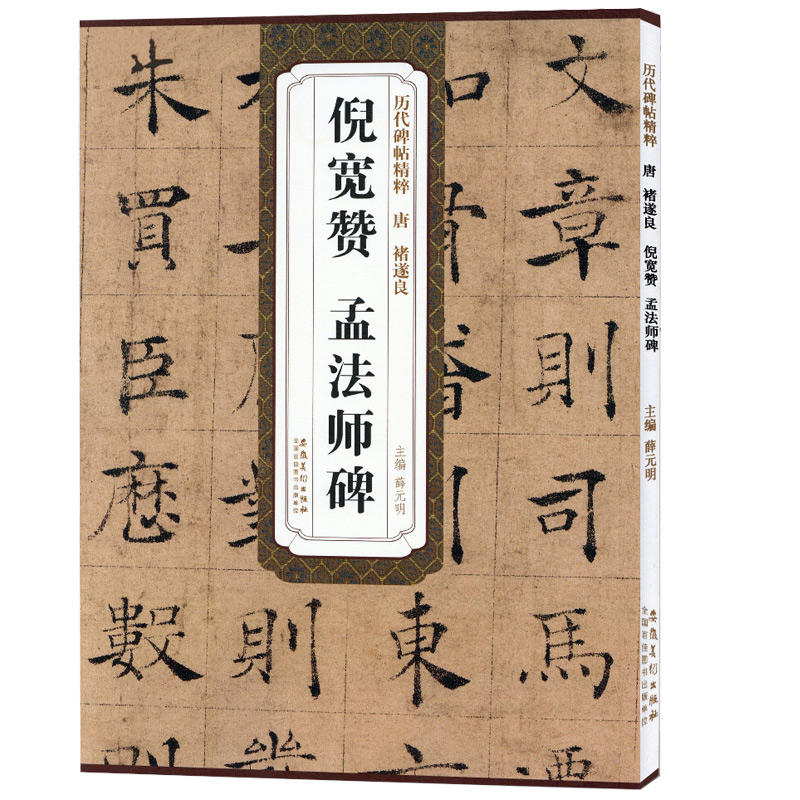 历代碑帖精粹 唐 褚遂良
倪宽赞 孟法师碑
主编 薛元明
安徽美术出版社
全国百佳图书出版单位
文章则司馬
東
則
朱買臣歴數
历代碑帖精粹 唐 褚遂良 倪宽赞 孟法师碑 主编 薛元明
安徽美术出版社
全国百佳图书出版单位